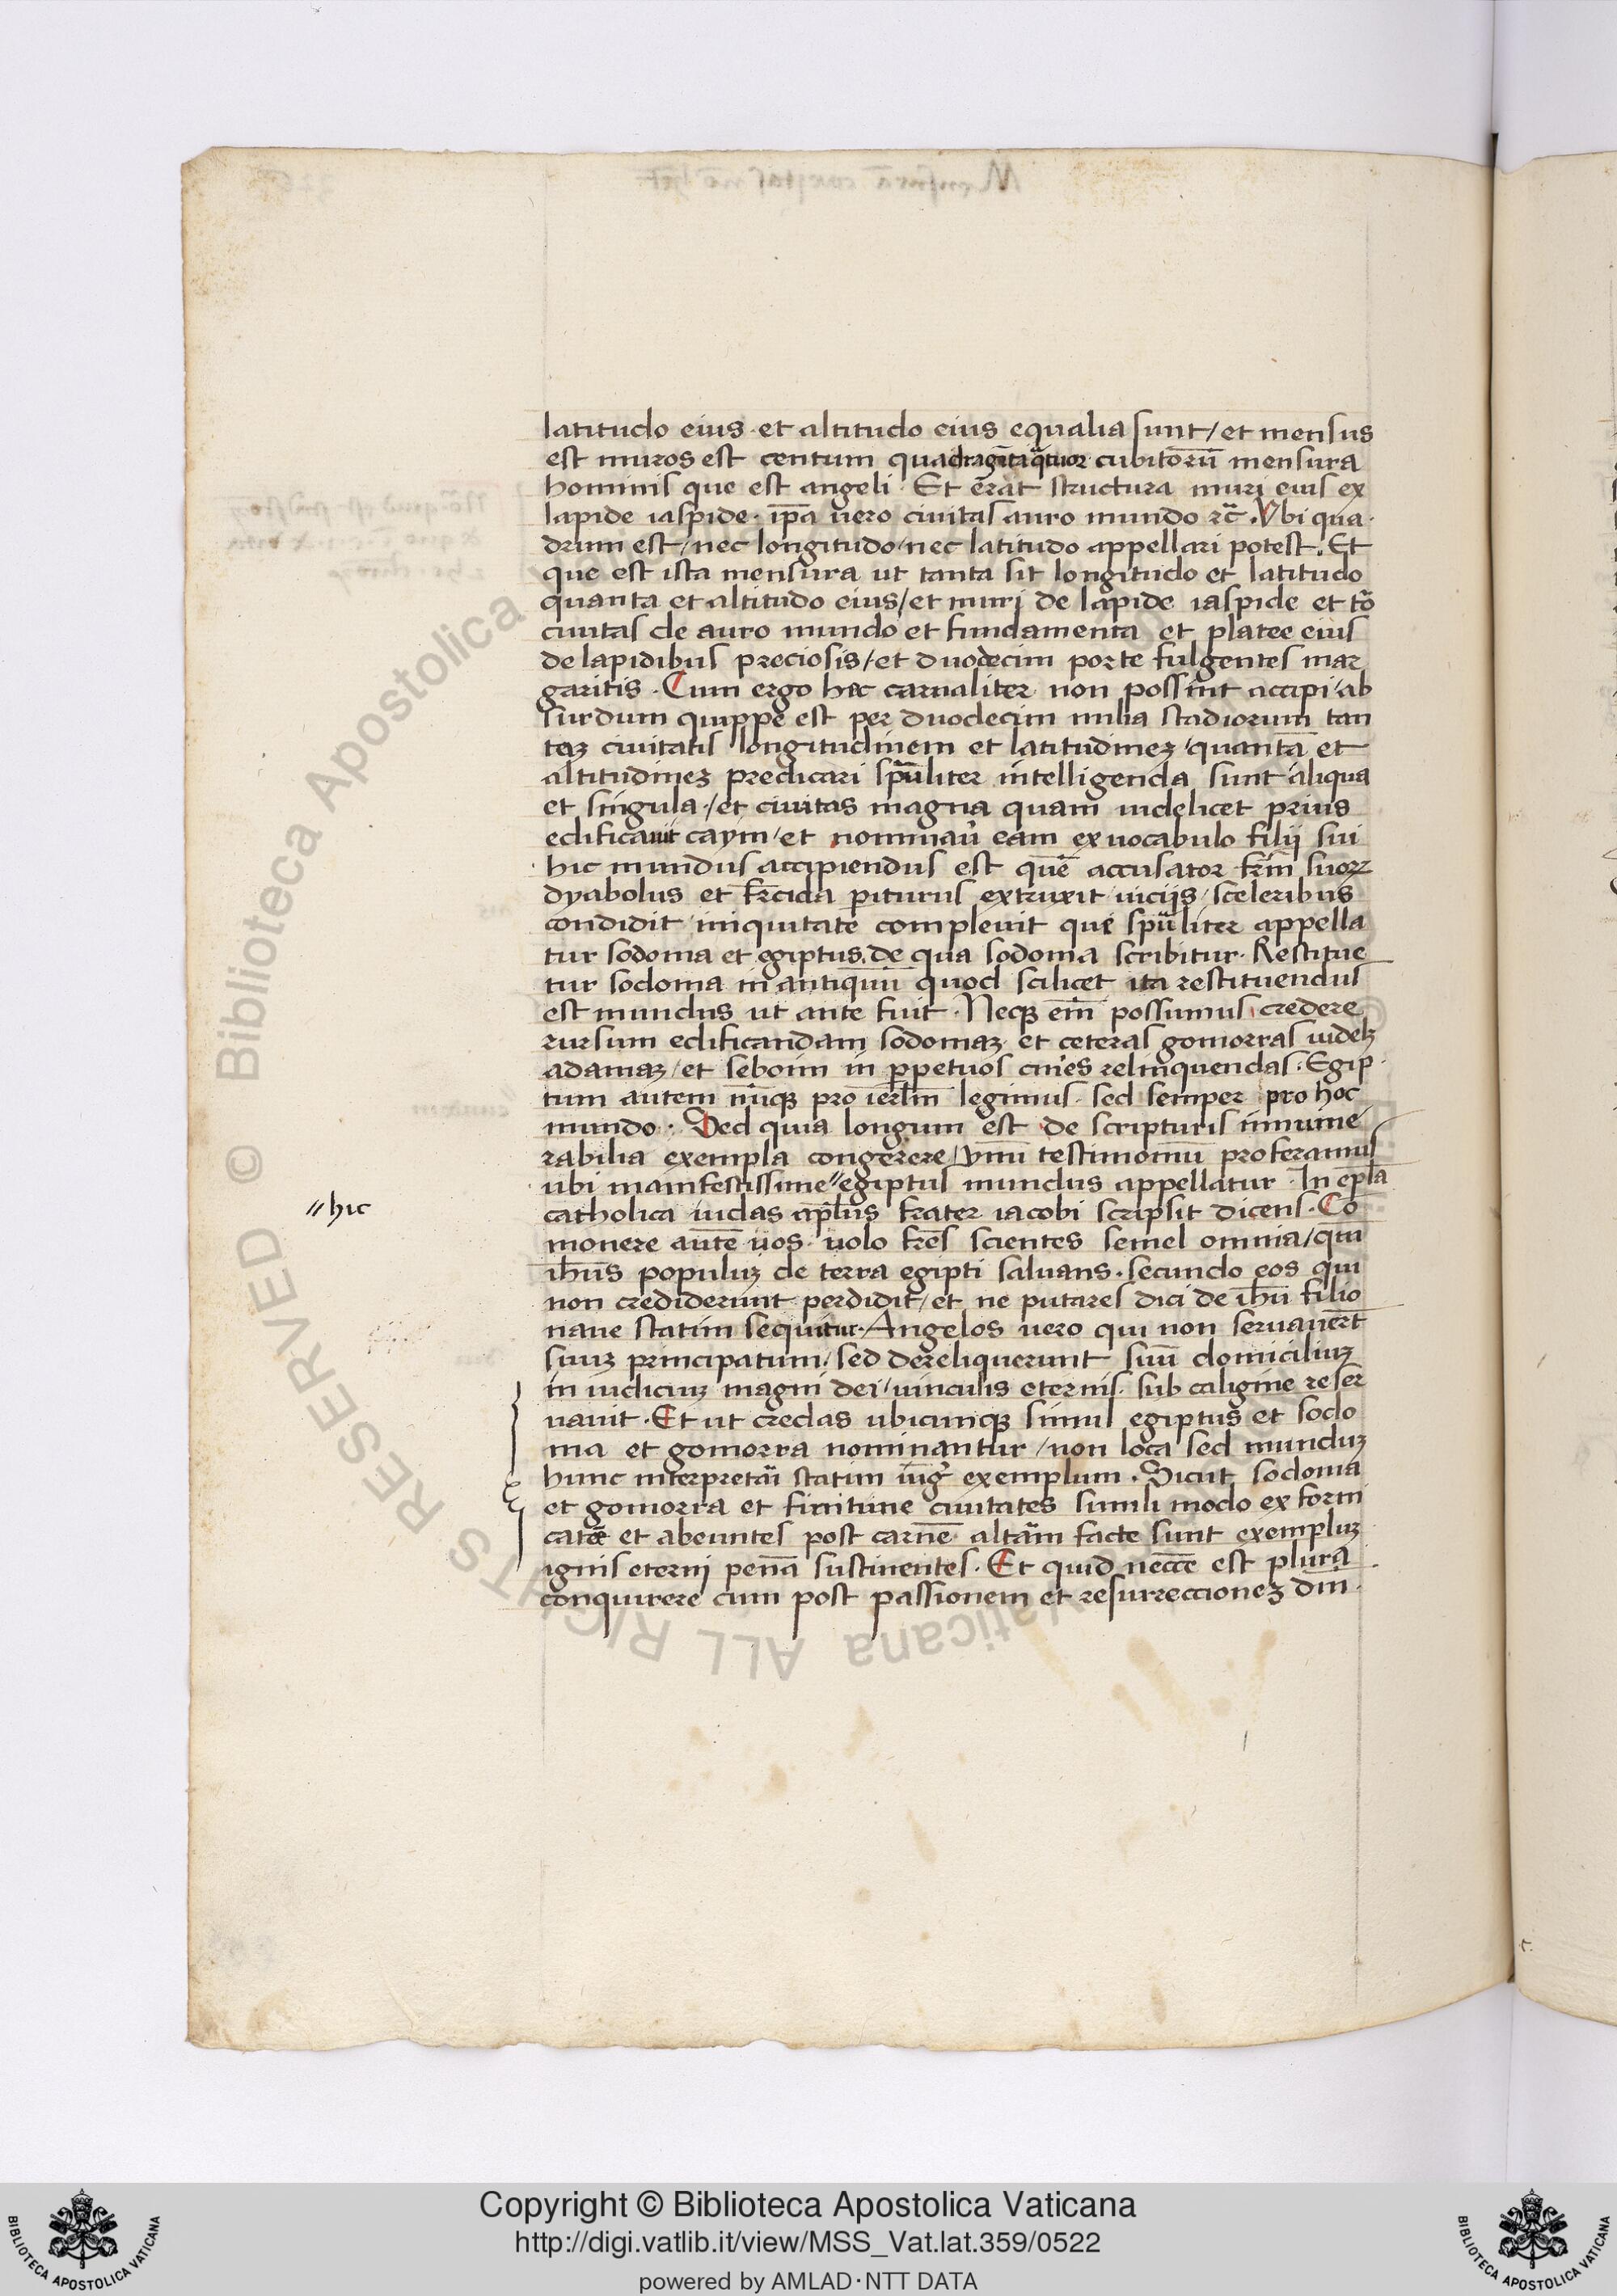 latitudo eius et altitudo eius equalia sunt / et mensus
est muros est centum quadragīta q̄tuor cubitorū mensura
hominis que est angeli. Et erat structura muri eius ex
lapide iaspide. ip̄a uero ciuitas auro mundo rc̄. Vbi qua
drum est / nec longitudo / nec latitudo appellari potest. Et
que est ista mensura ut tanta sit longitudo et latitudo
quanta et altitudo eius / et muri de lapide iaspide et to
ciuitas de auro mundo et fundamenta et platee eius
de lapidibus preciosis / et duodecim porte fulgentes mar
garitis. Cum ergo hec carnaliter non possint accipi / ab
surdum quippe est per duodecim milia stadiorum tan
teꝫ ciuitatis longitudinem et latitudineꝫ / quantā et
altitudineꝫ predicari sp̄ualiter intelligenda sunt aliqua
et singula / et ciuitas magna quam uidelicet prius
edificauit caym / et nominaū eam ex uocabulo filij sui
hic mundus accipiendus est quē accusator frm̄ suoꝝ
dyabolus et fr̄cida periturus extruxit / uicijs / sceleribus
condidit iniquitate compleuit que sp̄ualiter appella
tur sodoma et egiptus. de qua sodoma scribitur. Restitue
tur sodoma in antiquū quod scilicet ita restituendus
est mundus ut ante fuit. Neqꝫ em̄ possumus credere
rursum edificandam sodomaꝫ et ceteras gomorras uidelꝫ
adamaꝫ / et seboim in ꝑpetuos cin̄es relinquendas. Egip
tum autem nūqꝫ pro ierl̄m legimus. sed semper pro hoc
mundo. Sed quia longum est de scripturis innume
rabilia exempla congerere / vnū testimoniū proferamus
ubi manifestissime // egiptus mundus appellatur. In ep̄la
// hic
catholica iudas ap̄lus frater iacobi scripsit dicens. Co
monere autē uos uolo fr̄es scientes semel omnia / qm̄
ih̄us populuꝫ de terra egipti saluans. secundo eos qui
non crediderunt perdidit / et ne putares dici de ih̄u filio
naue statim sequitur. Angelos uero qui non seruauer̄t
suuꝫ principatum / sed dereliquerunt suū domiciliuꝫ
in iudiciuꝫ magni dei / uinculis eternis sub caligine reser
uauit. Et ut credas ubicumqꝫ simul egiptus et sodo
ma et gomorra nominantur / non loca sed munduꝫ
hunc interpretāi statim iūgͥ exemplum. Sicut sodoma
et gomorra et finitime ciuitates simili modo ex forni
cate et abeuntes post carnē altām facte sunt exempluꝫ
ignis eterni penā sustinentes. Et quid necc̄e est plura
conquirere cum post passionem et resurreccioneꝫ dm̄i

Copyright © Biblioteca Apostolica Vaticana
http://digi.vatlib.it/view/MSS_Vat.lat.359/0522
powered by AMLAD·NTT DATA
BIBLIOTECA APOSTOLICA VATICANA
BIBLIOTECA APOSTOLICA VATICANA
© Biblioteca Apostolica Vaticana ALL RIGHTS RESERVED